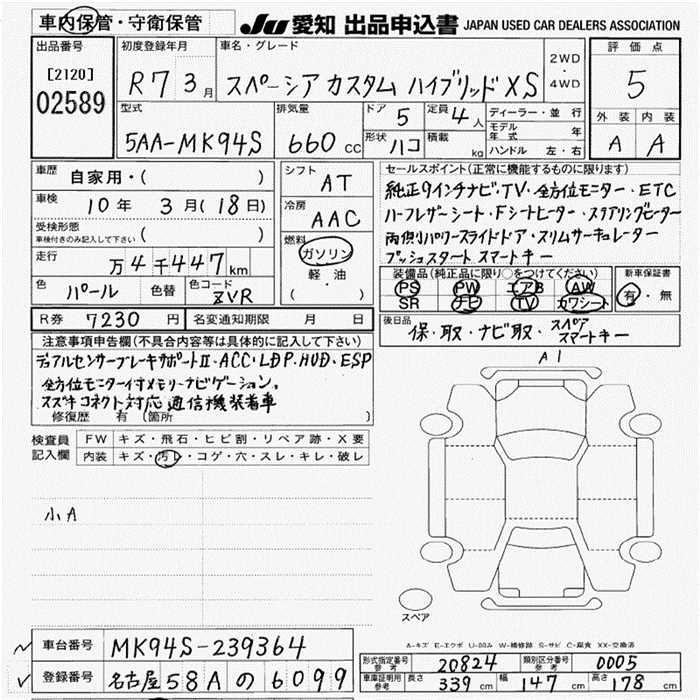 車内保管・守衛保管 JU 愛知 出品申込書 JAPAN USED CAR DEALERS ASSOCIATION
出品番号 [2120] 02589
初度登録年月 R7 3月
車名・グレード スペーシア カスタム ハイブリッド XS
2WD・4WD
評価点 5
外装 A 内装 A
型式 5AA-MK94S
排気量 660 cc
ドア 5 定員 4人
形状 ハコ 積載 kg
ディーラー・並行
モデル年式 年
ハンドル 左・右
車歴 自家用・( )
車検 10年 3月(18日)
受検形態 車検付きのみ記入して下さい ( )
走行 万4千447km
色 パール 色替 色コード ZVR
シフト AT
冷房 AAC
燃料 ガソリン 軽油 ( )
セールスポイント(正常に機能するものに限ります)
純正9インチナビ・TV・全方位モニター・ETC
ハーフレザーシート・Fシートヒーター・ステアリングヒーター
両側パワースライドドア・スリムサーキュレーター
プッシュスタート スマートキー
装備品(純正品に限り○をつけてください) 新車保証書
PS PW エアB AW 有・無
SR ナビ TV カワシート
R券 7230円 名変通知期限 月 日
後日品 保・取・ナビ取・スペア スマートキー
注意事項申告欄(不具合内容等は具体的に記入して下さい)
デュアルセンサーブレーキサポートⅡ・ACC・LDP・HUD・ESP
全方位モニター付メモリーナビゲーション。
スズキコネクト対応通信機装着車
修復歴 有 (箇所 )
A1
検査員記入欄 FW キズ・飛石・ヒビ割・リペア跡・X要
内装 キズ・汚レ・コゲ・穴・スレ・キレ・破レ
小A
スペア
A-キズ E-エクボ U-凹み W-補修跡 S-サビ C-腐食 XX-交換済
車台番号 MK94S-239364
登録番号 名古屋58Aの6099
形式指定番号 参考 20824 類別区分番号 参考 0005
車庫証明用 参考 長さ 339cm 幅 147cm 高さ 178cm